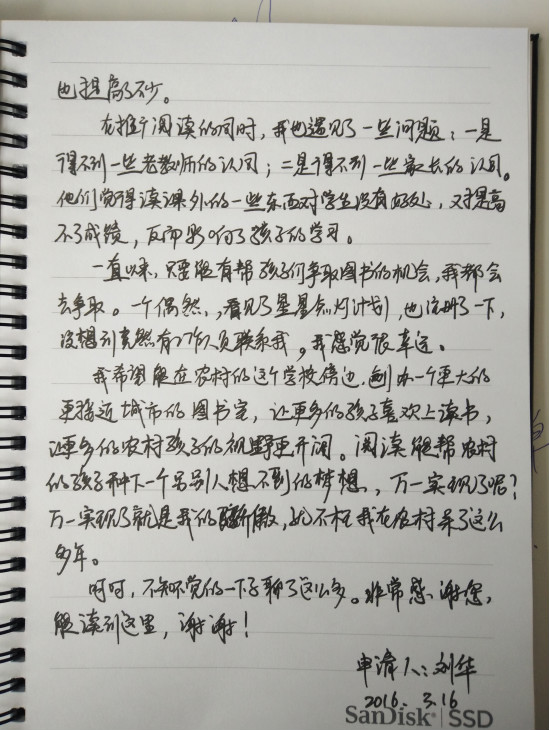 也提高不少。
在推广阅读的同时，我也遇见了一些问题：一是
得不到一些老教师的认同；二是得不到一些家长的认同。
他们觉得读课外的一些东西对学生没有好处，又提高
不了成绩，反而影响了孩子的学习。
一直以来，只要能有帮孩子们争取图书的机会，我都会
去争取。一个偶然，看见了星星点灯计划，也注册了一下，
没想到竟然有工作人员联系我。我感觉很幸运。
我希望能在农村的这个学校傍边，创办一个更大的
更接近城市的图书室，让更多的孩子喜欢上读书，
让更多的农村孩子的视野更开阔。阅读能帮农村
的孩子种下一个另别人想不到的梦想，万一实现了呢？
万一实现了就是我的骄傲，也不枉我在农村呆了这么
多年。
呵呵，不知不觉的一下子聊了这么多。非常感谢您，
能读到这里，谢谢！
申请人：刘华
2016.3.16
SanDisk SSD